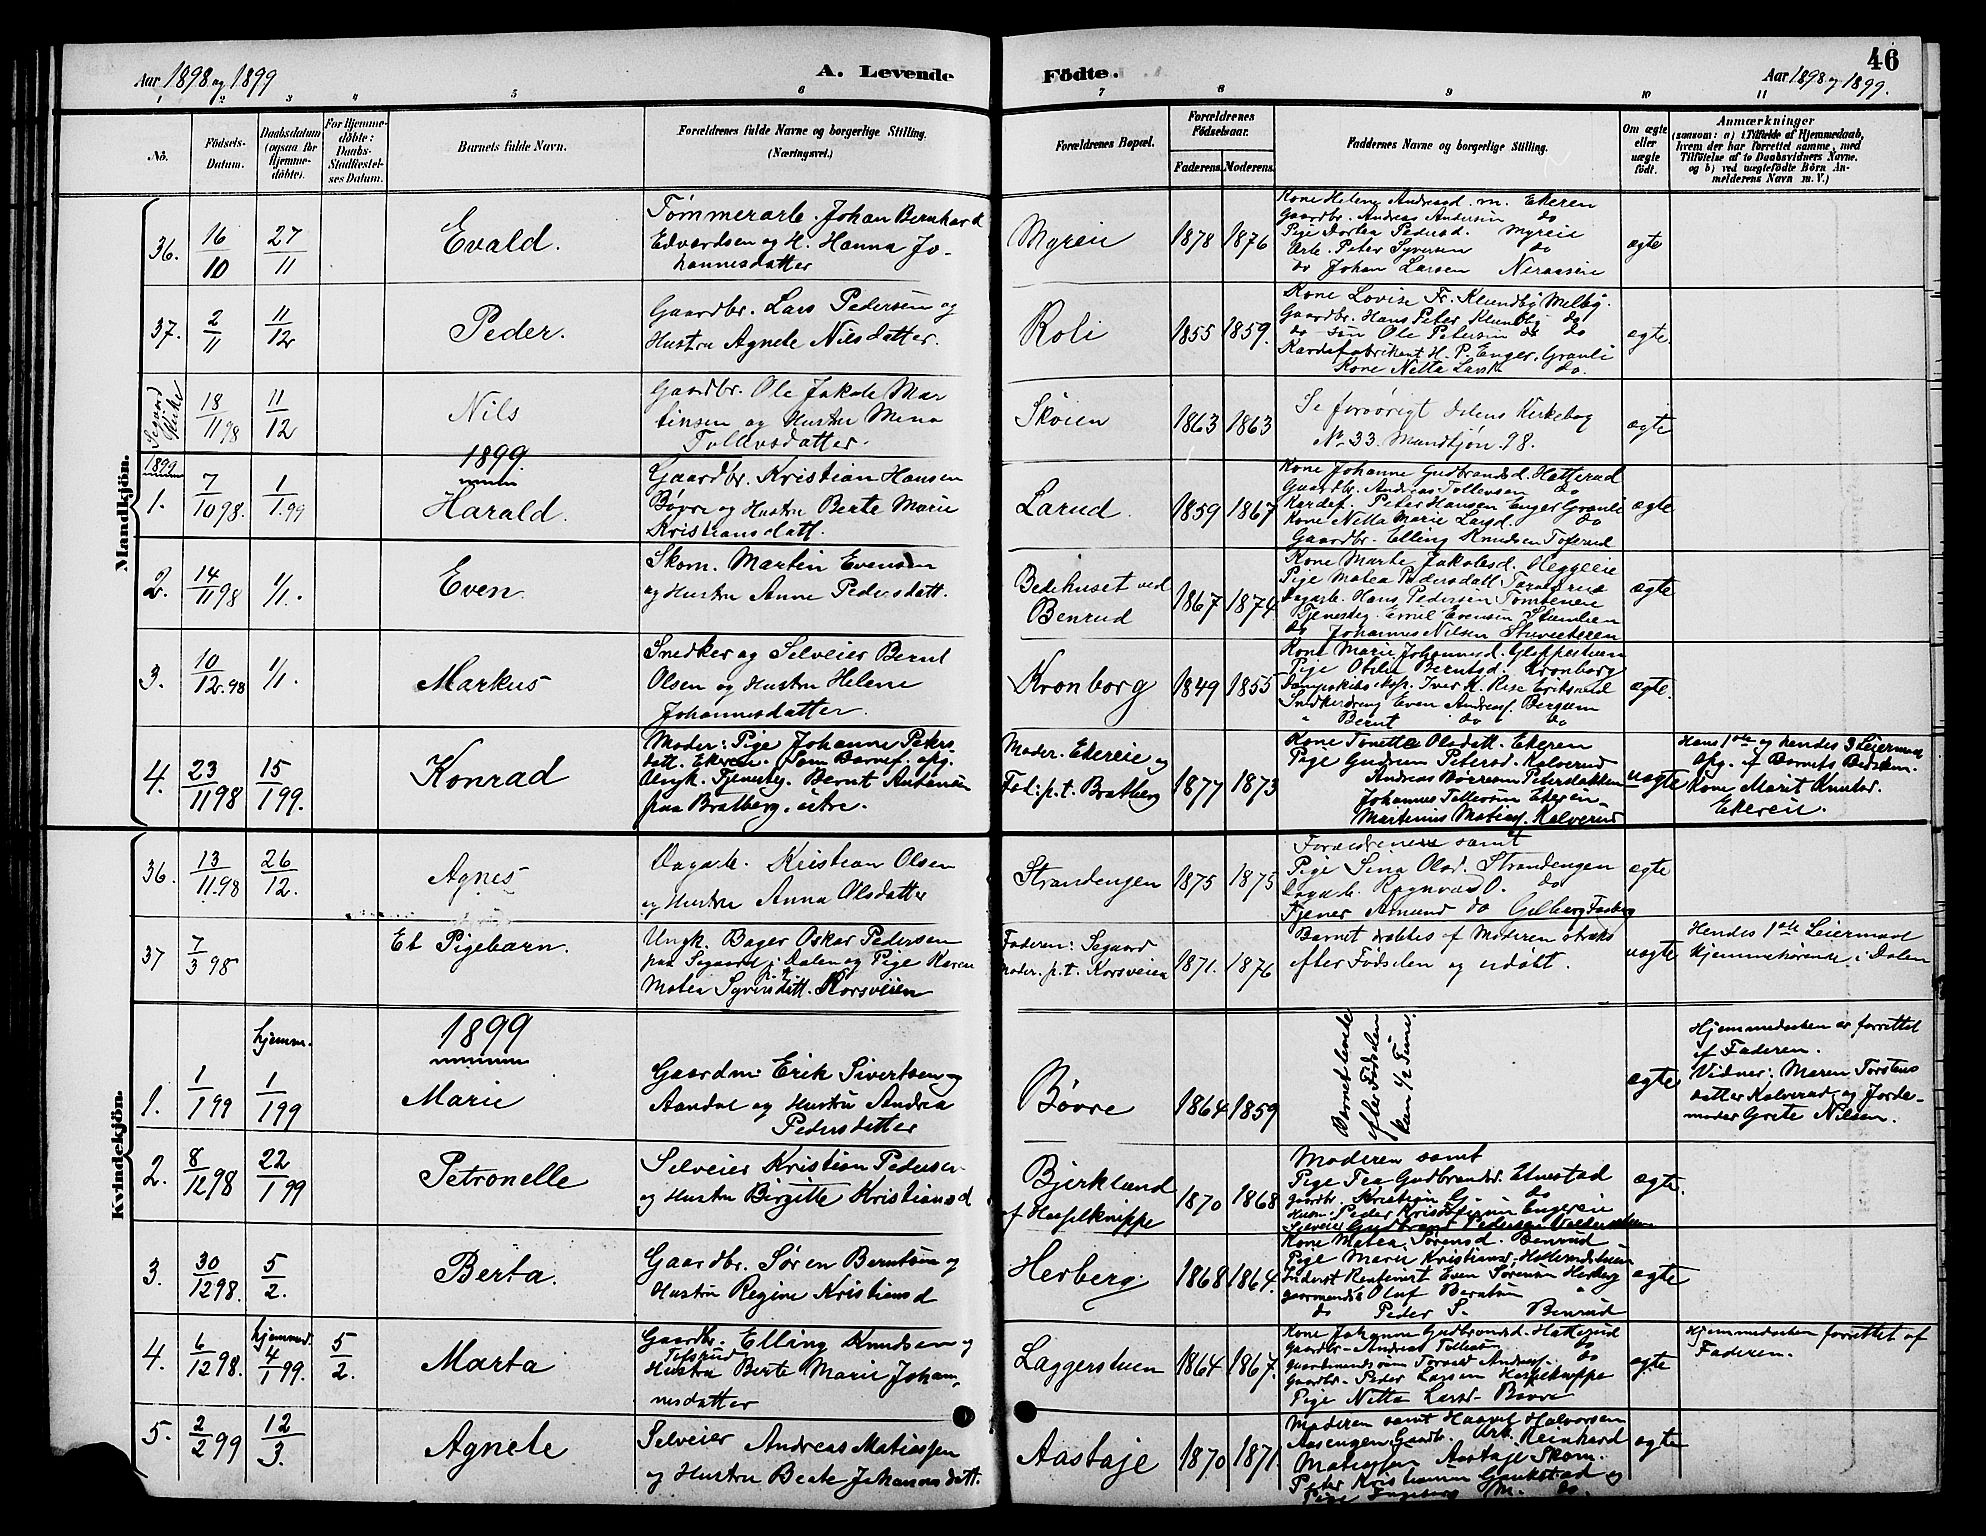 Aar 1898 og 1899
A. Levende Födte.
46
Aar 1898 og 1899.
1 2 3 4 5 6 7 8 9 10 11
No.
Födsels-Datum.
Daabsdatum (ogsaa for Hjemme-döbte).
For Hjemme-döbte: Daabs-Stadfæstel-ses Datum.
Barnets fulde Navn.
Forældrenes fulde Navne og borgerlige Stilling. (Næringsvei.)
Forældrenes Bopæl.
Forældrenes Födselsaar.
Faderens. Moderens.
Faddernes Navne og borgerlige Stilling.
Om ægte eller uægte födt.
Anmærkninger
(saasom: a) i Tilfælde af Hjemmedaab, hvem der har forrettet samme, med Tilföielse af to Daabsvidners Navne, og b) ved uægtefödte Börn Anmelderens Navn m. V.)
Mandkjön.
36. 16/10 27/11 Evald.
Tömmerarb. Johan Bernhard
Edvardsen og H. Hanna Jo-
hannesdatter
Myreie 1878 1876
Kone Helene Andreasd. m. Ekeren
Gaardbr. Andreas Andersen do
Pige Dortea Pedersd. Myreie
Arb. Peter Syversen do
do Johan Larsen Neraaseie
ægte
37. 2/11 11/12 Peder.
Gaardbr. Lars Pedersen og
Hustru Agnete Nilsdatter.
Roli 1855 1859.
Kone Lovise Fr. Klundby Melby.
Gaardbr. Hans Peter Klundby do
do søn Ole Petersen do do
Kardefabrikant H. P. Enger, Granli
Kone Netta Larsd. do.
ægte
18/11 98 11/12 Nils
Gaardbr. Ole Jakob Mar
tinsen og Hustru Mina
Tollevsdatter.
Skøien 1863 1863
Se forøvrigt Dalens Kirkebog
No 33. Mandkjøn 98.
ægte
1899
1899.
1. 7/10 98. 1/1 99 Harald.
Gaardbr. Kristian Hansen
Bøvre og Hustru Berte Marie
Kristiansdatt.
Larud. 1859 1867
Kone Johanne Gudbrandsd. Hatterud
Gaardbr. Andreas Tollevsen do
Kardef. Peter Hansen Enger Granli
Kone Netta Marie Larsd. do
Gaardbr. Elling Knudsen Toferud
ægte
2. 14/11 98 1/1. Even.
Skom. Martin Evensen
og Hustru Anne Pedersdatt.
Bedehuset ved
Benrud 1867 1874.
Kone Marte Jakobsd. Heggeeie
Pige Matea Pedersdatt
Dagarb. Hans Pedersen
Tjenestg. Emil Evensen
do Johannes Nilsen
ægte
3. 10/12. 98 1/1. Markus
Snedker og Selveier Bernt
Olsen og Hustru Helene
Johannesdatter.
Kronborg 1849 1855
Kone Marie Johannesd.
Pige Berntsd. Kronborg
Iver K. Rise
Snedkerdreng Even Andreass. Bergum
" Bernt do do
ægte.
4. 23/11 98 15/1 99. Konrad
Moder: Pige Johanne Peters-
datt. Ekeren. Som Barnef. opg.
Ungk. Tjenestg. Bernt Antonsen
paa Bratberg, østre.
Moder. Ekereie og
Fad: p.t. Bratberg
1877 1873
Kone Tonette Olsdatt. Ekeren
Pige Gudrun Petersd. Kalverud
Andreas Børresen Petersbakken
Johannes Tollevsen Ekereie
Martinius Matiass. Kalverud
uægte
Hans 1ste og hendes 3 Leiermaal
Opg. af Barnets Bedstem.
Kone Marit Knutsd.
Ekereie.
Kvindekjön.
36. 13/11. 98 26/12. Agnes
Dagarb. Kristian Olsen
og Hustru Anna Olsdatter
Strandengen 1875 1875
Forældrene samt
Pige Sina Olsd. Strandengen
Dagarb. Ragnvald O. do
Tjener Amund do Gilberg Faaberg
ægte
37 7/3 98 Et Pigebarn.
Ungk. Bager Oskar Pedersen
paa Sogaard i Dalen og Pige Karen
Matea Syversdatt. p.t. Korsveien
Faderen: Sogaard
Moder. p.t. Korsveien
1871. 1876
Barnet dræbtes af Moderen straks
efter Fødselen og udøbt.
uægte
Hendes 1ste Leiermaal
Hjemmehørende i Dalen
1899
1. 1/1 99 hjemme. 1/1 99 Marie
Gaardm: Erik Sivertsen
Aandal og Hustru Andrea
Pedersdatter
Bøvre 1864 1859
Barnet levede
efter Fødselen
kun 1/2 Time.
ægte
Hjemmedaaben er forrettet
af Faderen.
Vidner: Maren Torstens
datter Kalverud og Jorde-
moder Grete Nilsen.
2. 8/12 98 22/1 99 Petronelle
Selveier Kristian Pedersen
og Hustru Birgitte Kristiansd
Bjerklund
af Hasselknippe 1870 1868
Moderen samt
Pige Tea Gudbrandsd. Elnestad
Gaardbr. Kristian G. do
Husm. Peder Kristoffersen Engereie
Selveier Gudbrand Pedersen
ægte.
3. 30/12 98. 5/2. Berta.
Gaardbr. Søren Berntsen og
Hustru Regine Kristiansd
Herberg. 1868 1864.
Kone Matea Sørensd. Benrud
Pige Marie Kristiansd.
Inderst Rentenist Even Sørensen Herberg
Gaarmands Oluf Berntsen "
do Peder S. Benrud
ægte
4. 6/12 98. hjemmed. 4/1 99. 5/2. Marta
Gaardbr. Elling Knudsen
Tofsrud og
Hustru Berte Marie Johan-
nesdatter
Laggerstuen 1864 1867.
Kone Johanne Gudbrandsd. Hatterud
Gaardbr. Andreas Tollevsen do
Gaardmandssøn Torvald Andreass. do
Gaardbr. Peder Larsen Hasselknippe
Pige Netta Larsd. Bøvre
ægte
Hjemmedaaben forrettet af
Faderen.
5. 2/2 99 12/3. Agnete
Selveier Andreas Matiassen
og Hustru Beate Johannesdatt.
Aastaje 1870 1871.
Moderen samt Haavel Halvorsen
Aasengen, Gaardb. Arb. Reinhard
Matiassen Aastaje Skom.
Peter Kristiansen Gaukstad og
Pige Ingeborg M. do.
ægte